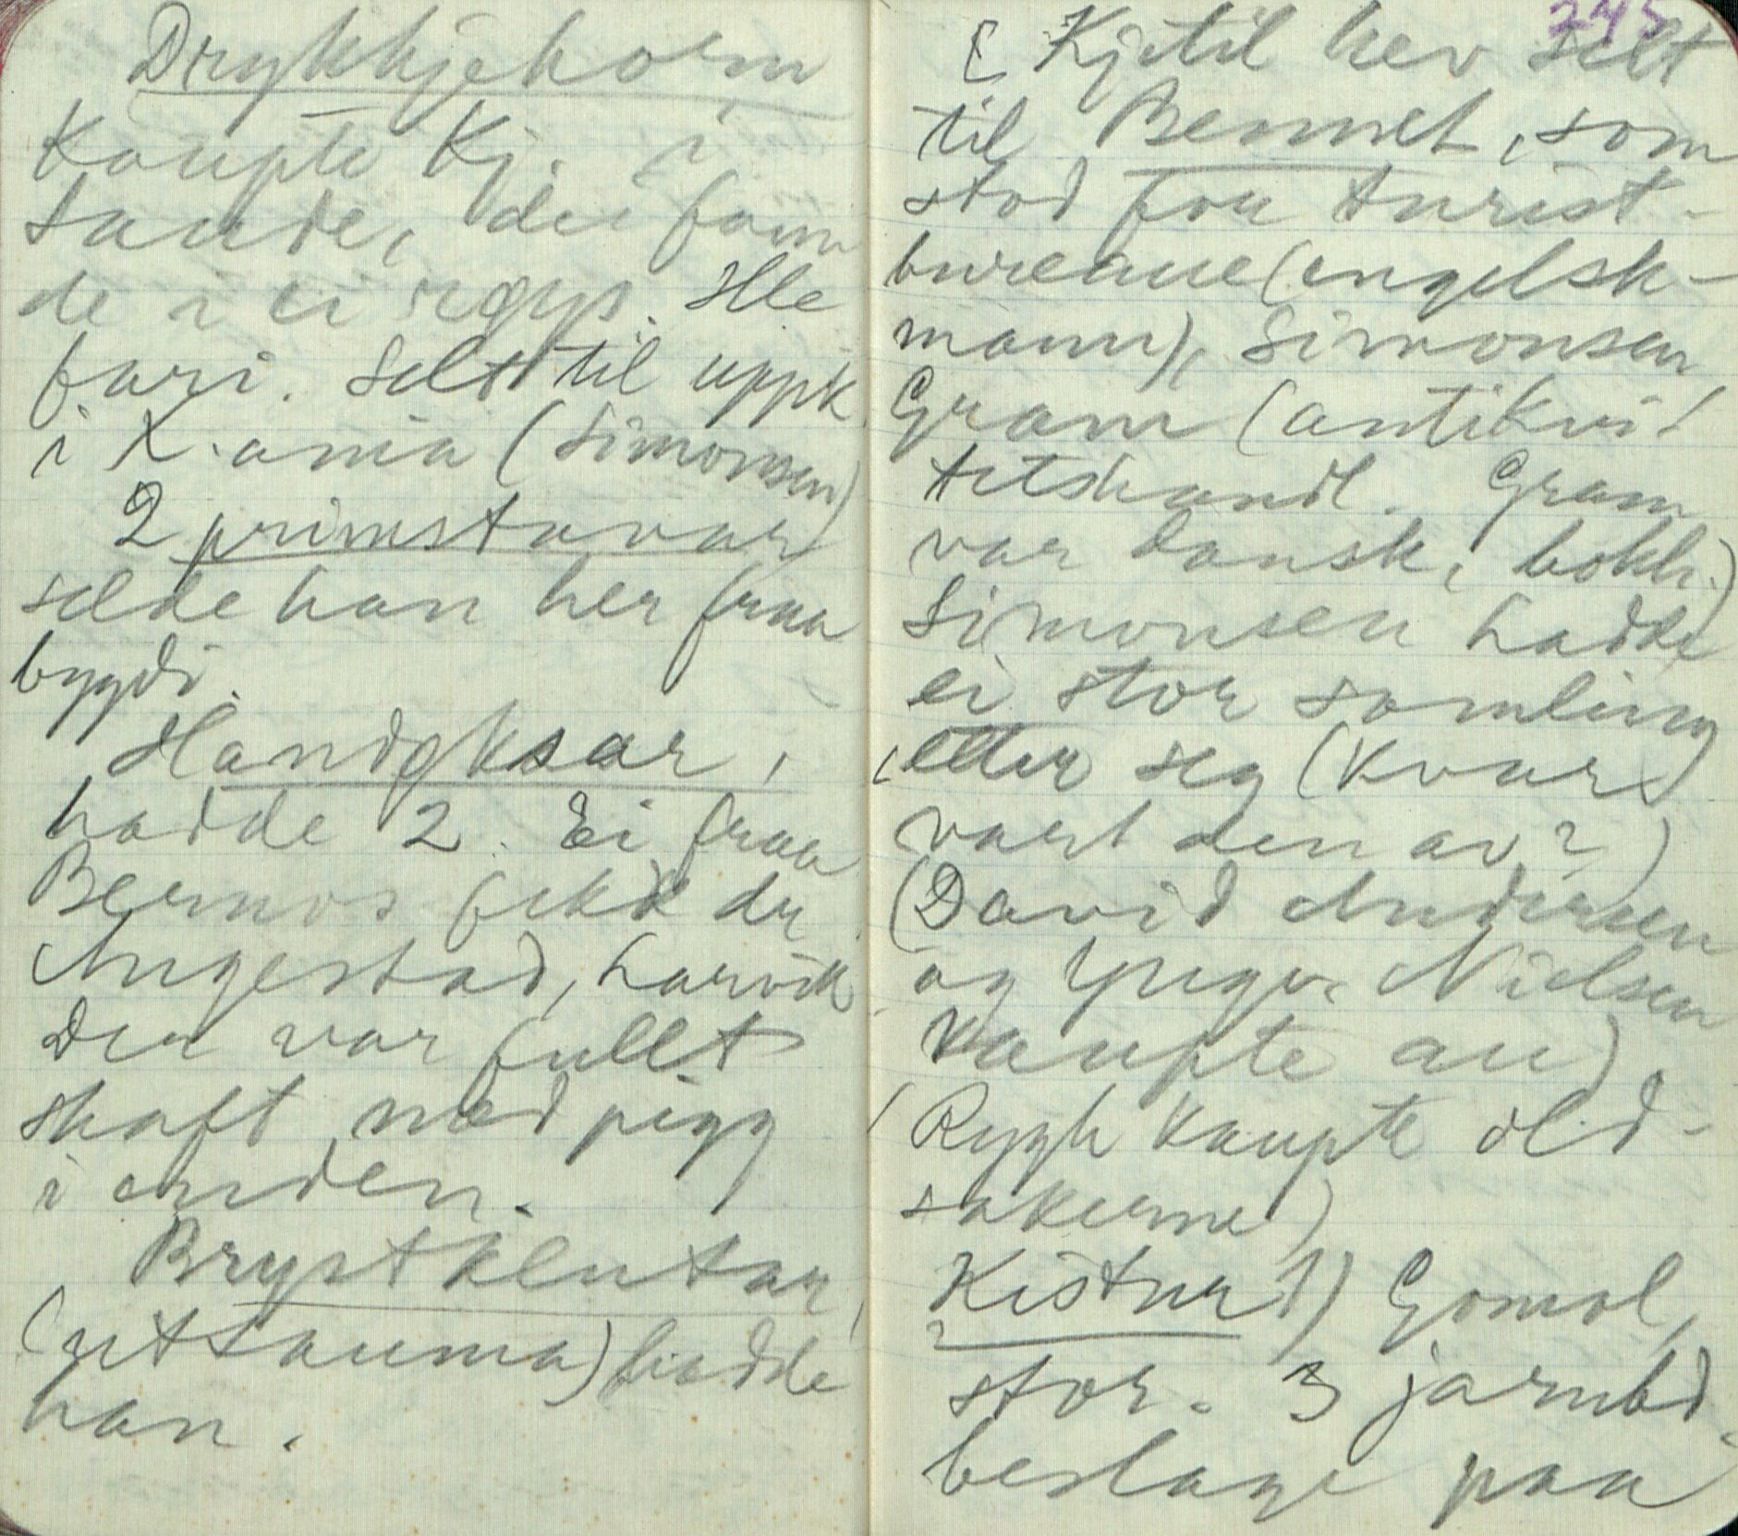 Drykkjehorn
Kaupte Kj. i
Saude, dei fann
de i ei røys. Hle
fari. Selt til uppk
i X.ania (Simonsen)
2 primstavar
selde han her fraa
bygdi.
Handøksar,
hadde 2. Ei fraa
fekk dr
Angestad, Larvik
Den var fullt
skaft med pigg
i enden.
Brystklutar
(utsauma) hadde
han.
245
[ Kjetil hev selt
til Bennet, som
stod for turist-
bureaue (engelsk-
mann), Simonsen,
Gram (antikvi-
tetshandl. Gram
var dansk, bokh.)
Simonsen hadde
ei stor samling
etter seg (kvar
vart den av?)
(David Andersen
og Yngv. Nielsen
kaupte au)
(Rygh kaupte old-
sakerne)
Kistur 1) Gomol,
stor. 3 jarnbd.
beslage paa